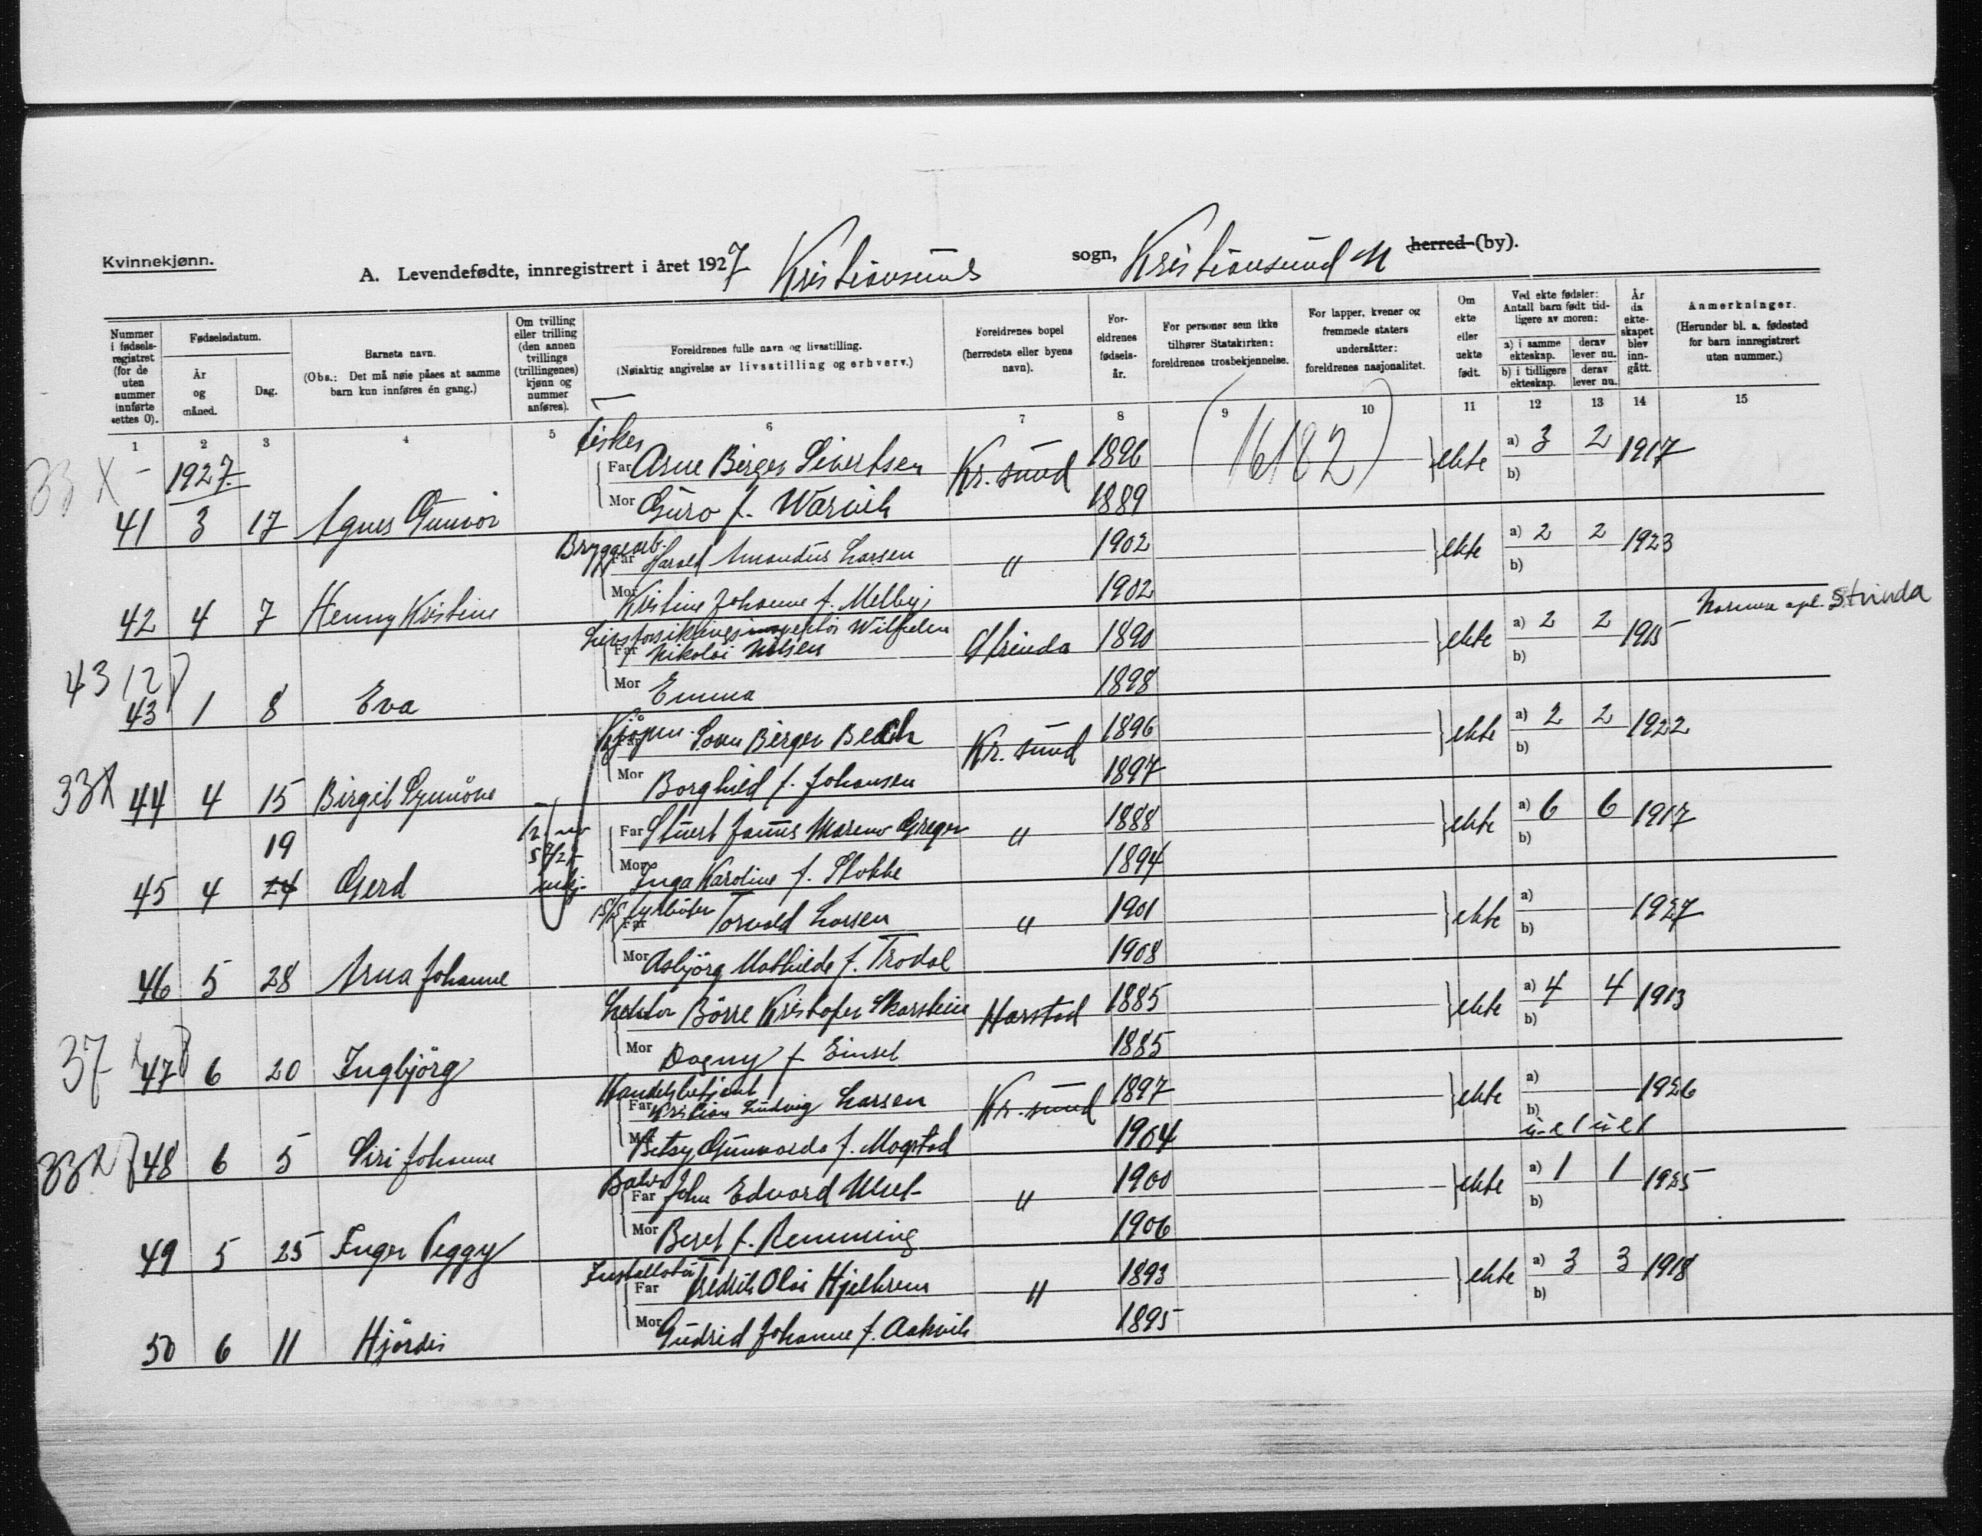 Kvinnekjønn.
A. Levendefødte, innregistrert i året 1927 Kristiansunds sogn, Kristiansund N herred (by).
Nummer i fødsels-registret (for de uten nummer innførte settes 0).
Fødselsdatum.
År og måned.
Dag.
Barnets navn.
(Obs.: Det må nøie påses at samme barn kun innføres én gang.)
Om tvilling eller trilling (den annen tvillings (trillingenes) kjønn og nummer anføres).
Foreldrenes fulle navn og livsstilling.
(Nøiaktig angivelse av livsstilling og erhverv.)
Foreldrenes bopel (herredets eller byens navn).
For-eldrenes fødsels-år.
For personer som ikke tilhører Statskirken: foreldrenes trosbekjennelse.
For lapper, kvener og fremmede staters undersåtter: foreldrenes nasjonalitet.
Om ekte eller uekte født.
Ved ekte fødsler: Antall barn født tid-ligere av moren:
a) i samme ekteskap.
derav lever nu.
b) i tidligere ekteskap.
derav lever nu.
År da ekte-skapet blev inn-gått.
Anmerkninger.
(Herunder bl. a. fødested for barn innregistrert uten nummer.)
1 2 3 4 5 6 7 8 9 10 11 12 13 14 15
33 X - 1927
Fisker
Far Arne Birger Sivertsen Kr. sund 1896 (16182) ekte a) 3 2 1917
Mor Guro f. Warvik 1889 b)
41 3 17 Agnes Gunvor
Bryggearb.
Far Harald Amandus Larsen " 1902 ekte a) 2 2 1923
Mor Kristine Johanne f. Melbye 1902 b)
42 4 7 Henny Kristine
Livsforsikringsinspektør Wilhelm
Far Nikolai Nilsen Strinda 1890 ekte a) 2 2 1915 - Strinda
Mor Emma 1898 b)
43 12
43 1 8 Eva
Kjøpm.
Far Birger Bech Kr. sund 1896 ekte a) 2 2 1922
Mor Borghild f. Johansen 1897 b)
33X 44 4 15 Birgit Synnöve
Far Stuert Janus Greger " 1888 ekte a) 6 6 1917
Mor Inga Karoline f. Stokke 1894 b)
19
45 4 24 Gerd
Fyrbøter
Far Torvald Larsen " 1901 ekte a) 1927
Mor Asbjörg Mathilde f. Trodal 1908 b)
46 5 28 Arna Johanne
Lektor Börre Kristofer Skarstein Harstad 1885 ekte a) 4 4 1913
Mor Dagny f. Einset 1885 b)
37 47 6 20 Ingbjörg
Handelsbetjent
Far Kristian Ludvig Larsen Kr. sund 1897 ekte a) 1926
Mor Betsy Gunvarda f. Mogstad 1904 b) uel uel
33X 48 6 5 Siri Johanne
Far John Edvard Uset " 1900 ekte a) 1 1 1925
Mor Beret f. Remmning 1906 b)
49 5 25 Inger Peggy
Installatør
Far Fredrik Olai Hjelkrem " 1893 ekte a) 3 3 1918
Mor Gudrid Johanne f. Aakvik 1895 b)
50 6 11 Hjördis